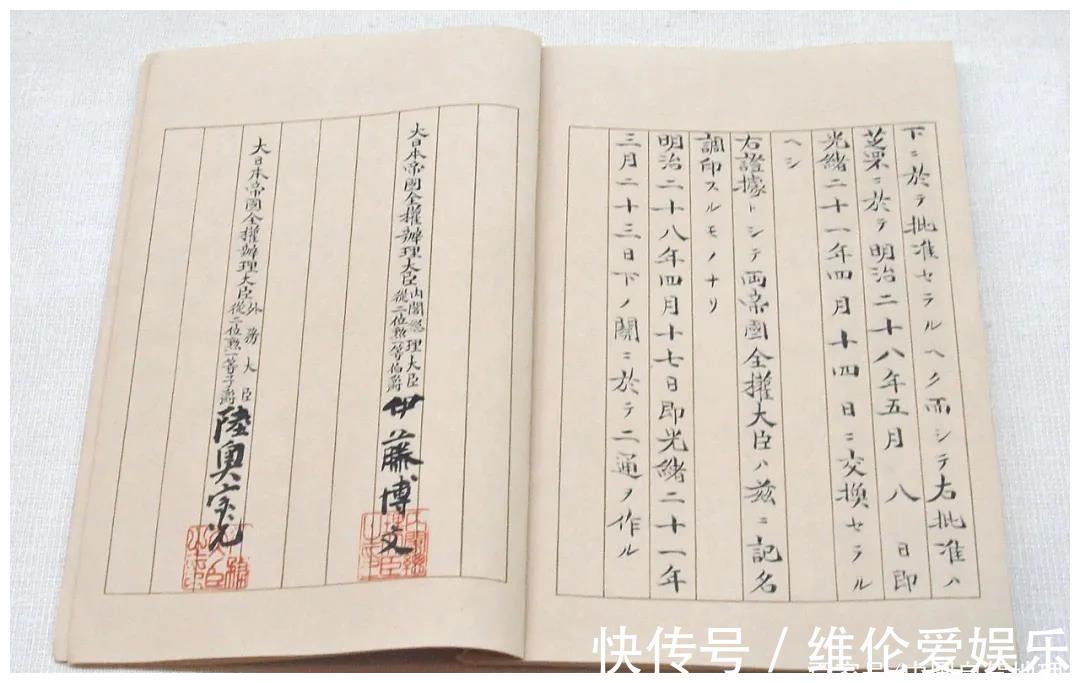 下ニ於テ批准セラルヘク而シテ右批准ハ
芝罘ニ於テ明治二十八年五月八日即
光緒二十一年四月十四日ニ交換セラル
ヘシ
右證據トシテ両帝國全權大臣ハ茲ニ記名
調印スルモノナリ
明治二十八年四月十七日即光緒二十一年
三月二十三日下ノ關ニ於テ二通ヲ作ル
大日本帝國全權辦理大臣內閣總理大臣從二位勲一等伯爵伊藤博文
大日本帝國全權辦理大臣外務大臣從二位勲一等子爵陸奥宗光
快传号／维伦爱娱乐